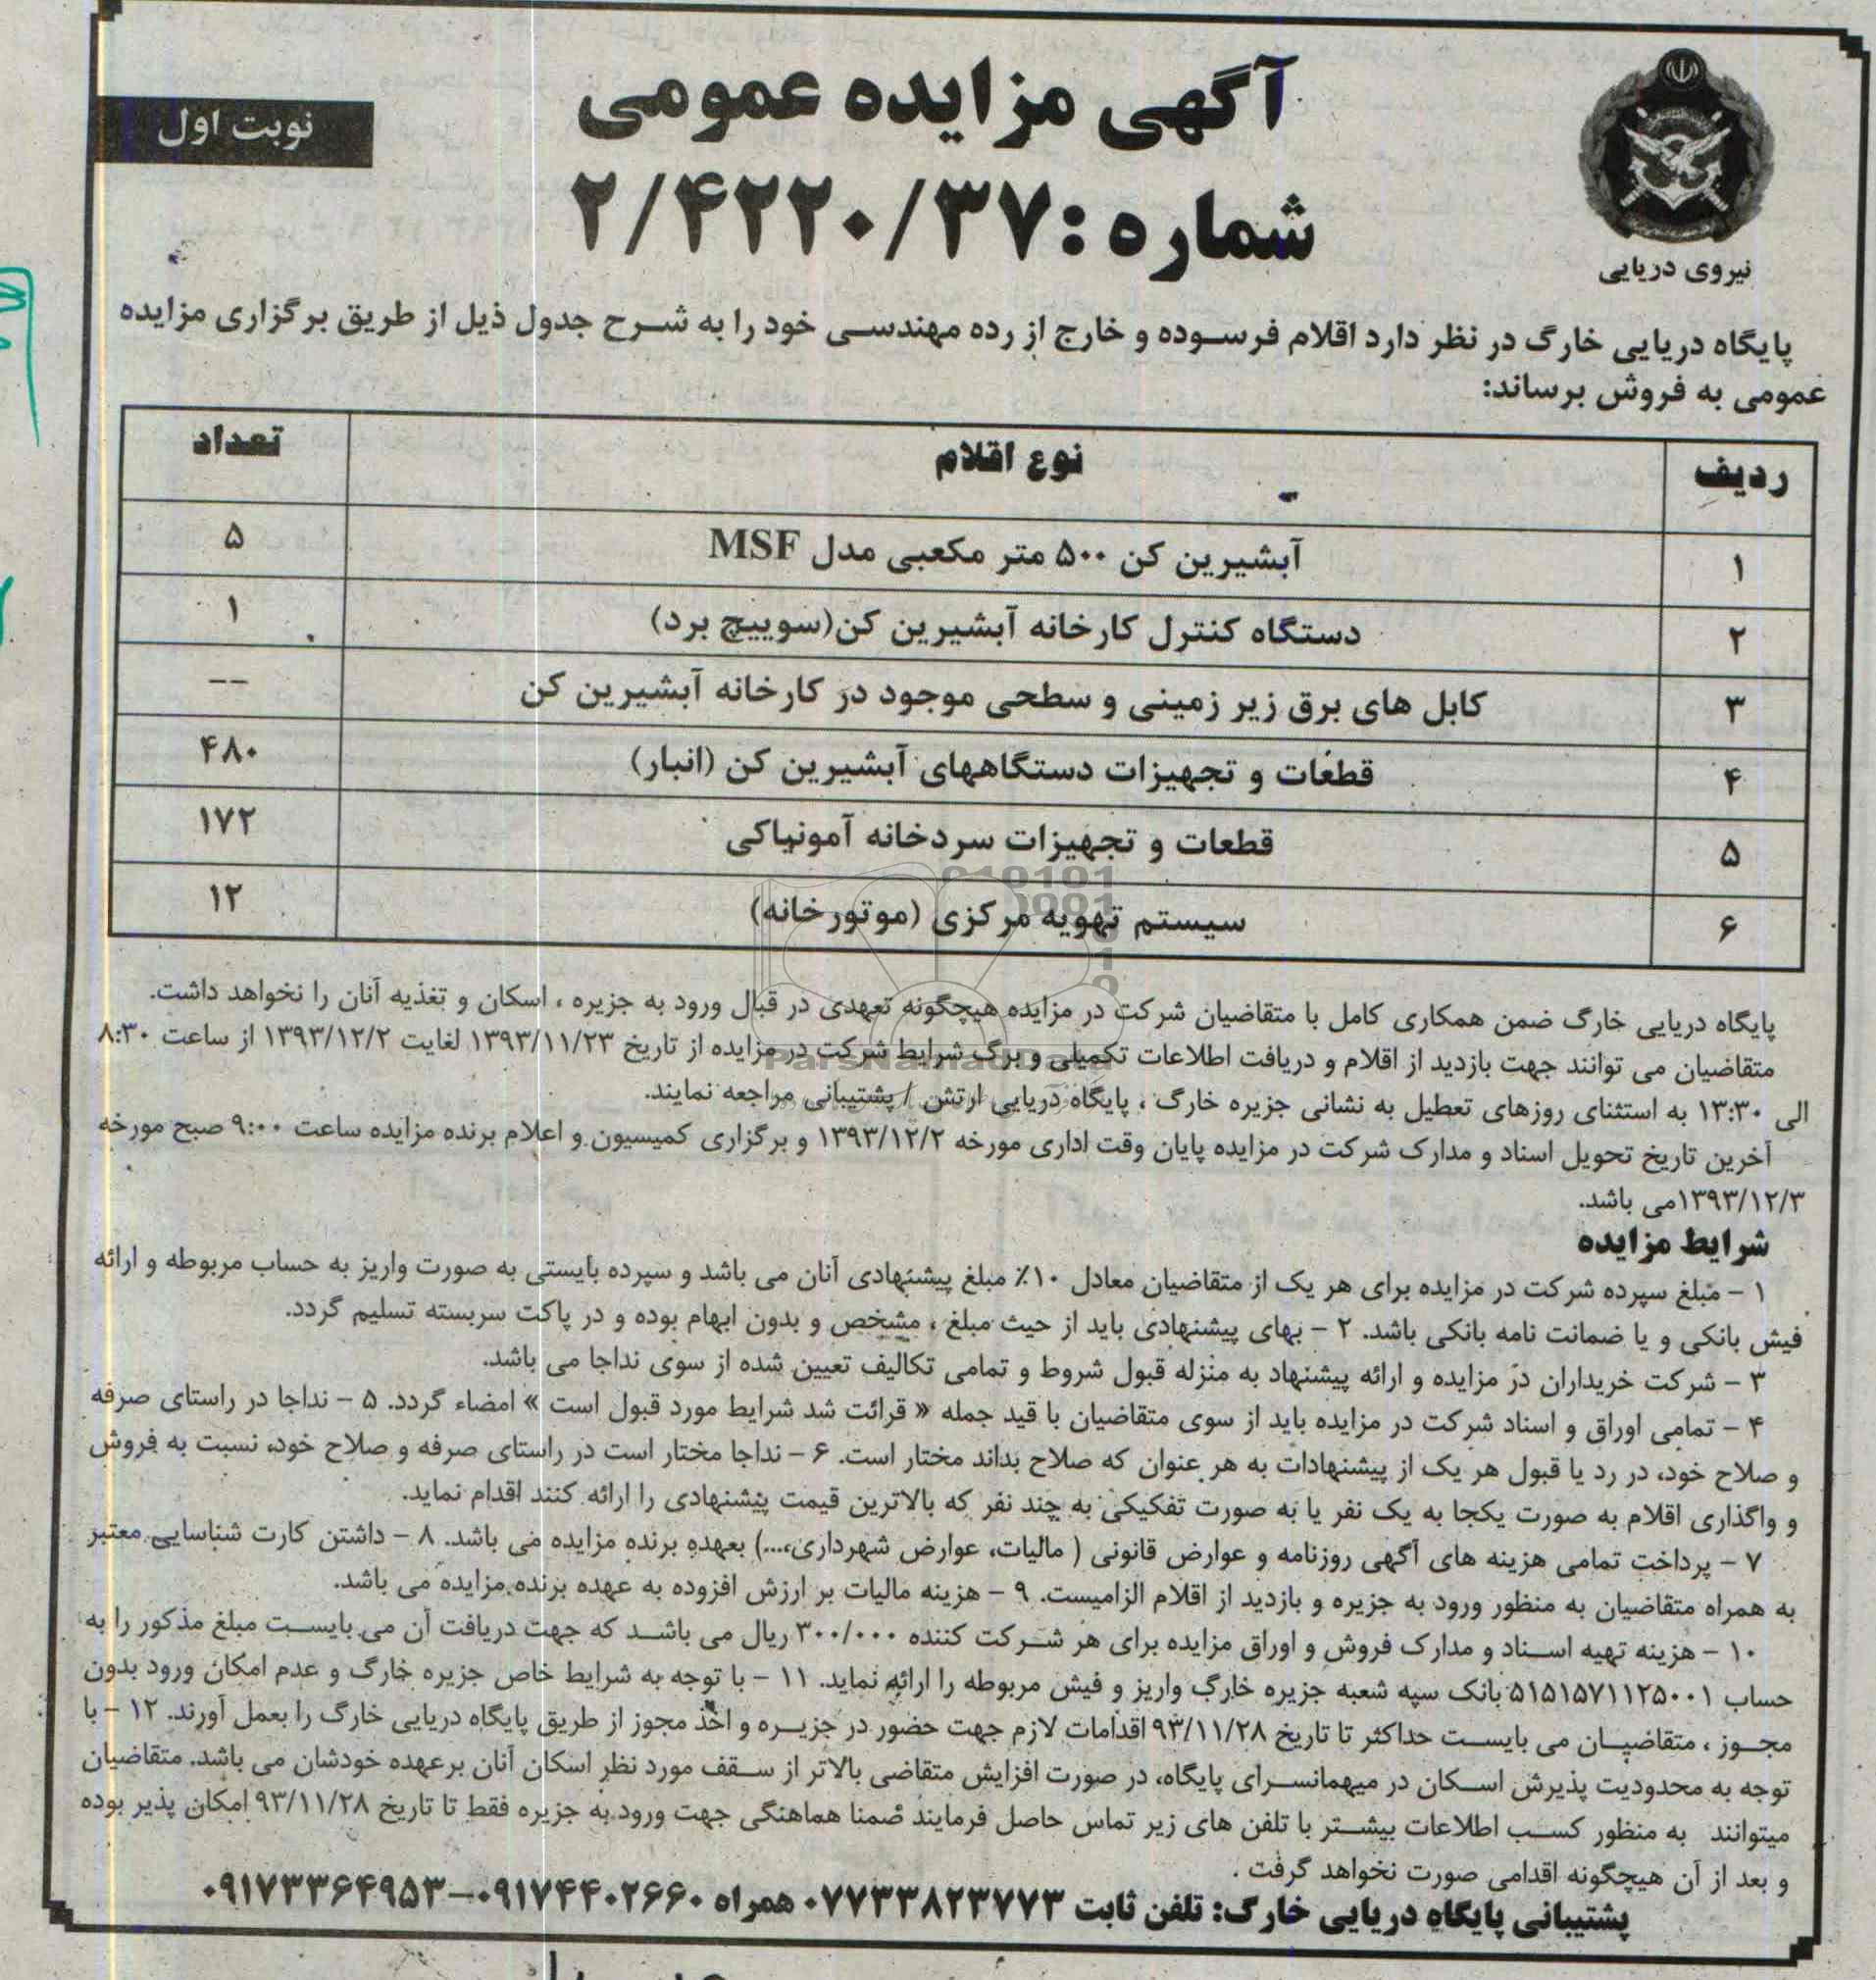 آگهی مزایده عمومی
نوبت اول
شماره: ۲/۴۲۲۰/۳۷
نیروی دریایی
پایگاه دریایی خارگ در نظر دارد اقلام فرسوده و خارج از رده مهندسی خود را به شرح جدول ذیل از طریق برگزاری مزایده
عمومی به فروش برساند:
ردیف نوع اقلام تعداد
۱ آبشیرین کن ۵۰۰ متر مکعبی مدل MSF ۵
۲ دستگاه کنترل کارخانه آبشیرین کن(سوییچ برد) ۱
۳ کابل های برق زیر زمینی و سطحی موجود در کارخانه آبشیرین کن --
۴ قطعات و تجهیزات دستگاههای آبشیرین کن (انبار) ۴۸۰
۵ قطعات و تجهیزات سردخانه آمونیاکی ۱۷۲
۶ سیستم تهویه مرکزی (موتورخانه) ۱۲
پایگاه دریایی خارگ ضمن همکاری کامل با متقاضیان شرکت در مزایده هیچگونه تعهدی در قبال ورود به جزیره ، اسکان و تغذیه آنان را نخواهد داشت.
متقاضیان می توانند جهت بازدید از اقلام و دریافت اطلاعات تکمیلی و برگ شرایط شرکت در مزایده از تاریخ ۱۳۹۳/۱۱/۲۳ لغایت ۱۳۹۳/۱۲/۲ از ساعت ۸:۳۰
الی ۱۳:۳۰ به استثنای روزهای تعطیل به نشانی جزیره خارگ ، پایگاه دریایی ارتش / پشتیبانی مراجعه نمایند.
آخرین تاریخ تحویل اسناد و مدارک شرکت در مزایده پایان وقت اداری مورخه ۱۳۹۳/۱۲/۲ و برگزاری کمیسیون و اعلام برنده مزایده ساعت ۹:۰۰ صبح مورخه
۱۳۹۳/۱۲/۳می باشد.
شرایط مزایده
۱ – مبلغ سپرده شرکت در مزایده برای هر یک از متقاضیان معادل ۱۰٪ مبلغ پیشنهادی آنان می باشد و سپرده بایستی به صورت واریز به حساب مربوطه و ارائه
فیش بانکی و یا ضمانت نامه بانکی باشد. ۲ – بهای پیشنهادی باید از حیث مبلغ ، مشخص و بدون ابهام بوده و در پاکت سربسته تسلیم گردد.
۳ – شرکت خریداران در مزایده و ارائه پیشنهاد به منزله قبول شروط و تمامی تکالیف تعیین شده از سوی نداجا می باشد.
۴ – تمامی اوراق و اسناد شرکت در مزایده باید از سوی متقاضیان با قید جمله « قرائت شد شرایط مورد قبول است » امضاء گردد. ۵ – نداجا در راستای صرفه
و صلاح خود، در رد یا قبول هر یک از پیشنهادات به هر عنوان که صلاح بداند مختار است. ۶ – نداجا مختار است در راستای صرفه و صلاح خود، نسبت به فروش
و واگذاری اقلام به صورت یکجا به یک نفر یا به صورت تفکیکی به چند نفر که بالاترین قیمت پیشنهادی را ارائه کنند اقدام نماید.
۷ – پرداخت تمامی هزینه های آگهی روزنامه و عوارض قانونی ( مالیات، عوارض شهرداری،...) بعهده برنده مزایده می باشد. ۸ – داشتن کارت شناسایی معتبر
به همراه متقاضیان به منظور ورود به جزیره و بازدید از اقلام الزامیست. ۹ – هزینه مالیات بر ارزش افزوده به عهده برنده مزایده می باشد.
۱۰ – هزینه تهیه اسناد و مدارک فروش و اوراق مزایده برای هر شرکت کننده ۳۰۰/۰۰۰ ریال می باشد که جهت دریافت آن می بایست مبلغ مذکور را به
حساب ۵۱۵۱۵۷۱۱۲۵۰۰۱ بانک سپه شعبه جزیره خارگ واریز و فیش مربوطه را ارائه نماید. ۱۱ – با توجه به شرایط خاص جزیره خارگ و عدم امکان ورود بدون
مجوز ، متقاضیان می بایست حداکثر تا تاریخ ۹۳/۱۱/۲۸ اقدامات لازم جهت حضور در جزیره و اخذ مجوز از طریق پایگاه دریایی خارگ را بعمل آورند. ۱۲ – با
توجه به محدودیت پذیرش اسکان در میهمانسرای پایگاه، در صورت افزایش متقاضی بالاتر از سقف مورد نظر اسکان آنان برعهده خودشان می باشد. متقاضیان
میتوانند به منظور کسب اطلاعات بیشتر با تلفن های زیر تماس حاصل فرمایند ضمنا هماهنگی جهت ورود به جزیره فقط تا تاریخ ۹۳/۱۱/۲۸ امکان پذیر بوده
و بعد از آن هیچگونه اقدامی صورت نخواهد گرفت .
پشتیبانی پایگاه دریایی خارگ: تلفن ثابت ۰۷۷۳۳۸۲۳۷۷۳ همراه ۰۹۱۷۴۴۰۲۶۶۰–۰۹۱۷۳۳۶۴۹۵۳